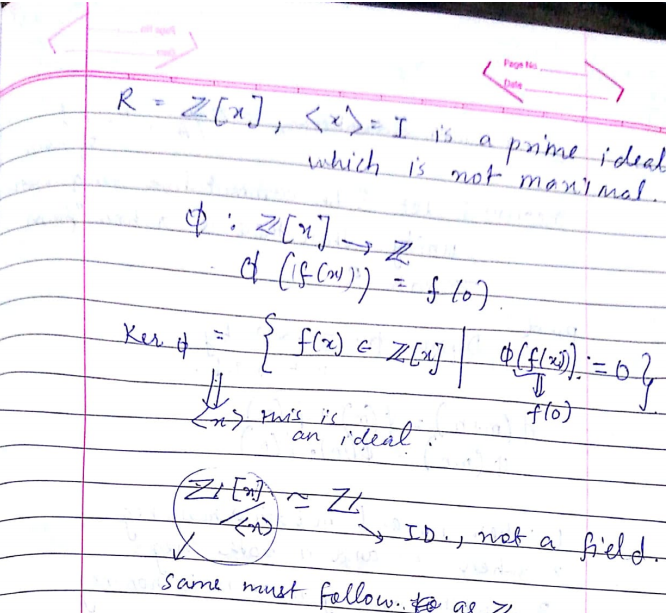 Page No.
Date
R = Z[x], <x> = I is a prime ideal
which is not maximal.
ϕ : Z[x] → Z
ϕ (f(x)) = f(0)
Ker ϕ = { f(x) ∈ Z[x] | ϕ(f(x)) = 0 }
⇓ f(0)
<x> this is
an ideal.
Z[x]/<x> ≃ Z
↘ ID., not a field.
same must follow as Z